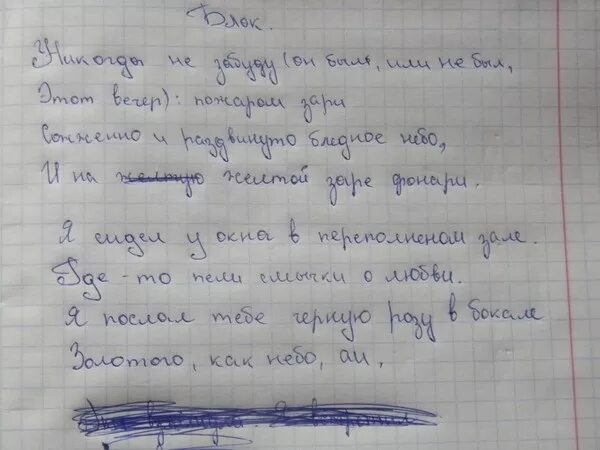 Блок.
Никогда не забуду (он был, или не был,
Этот вечер): пожаром зари
Сожженно и раздвинуто бледное небо,
И на желтую желтой заре фонари.
Я сидел у окна в переполненом зале.
Где-то пели смычки о любви.
Я послал тебе черную розу в бокале
Золотого, как небо, аи.